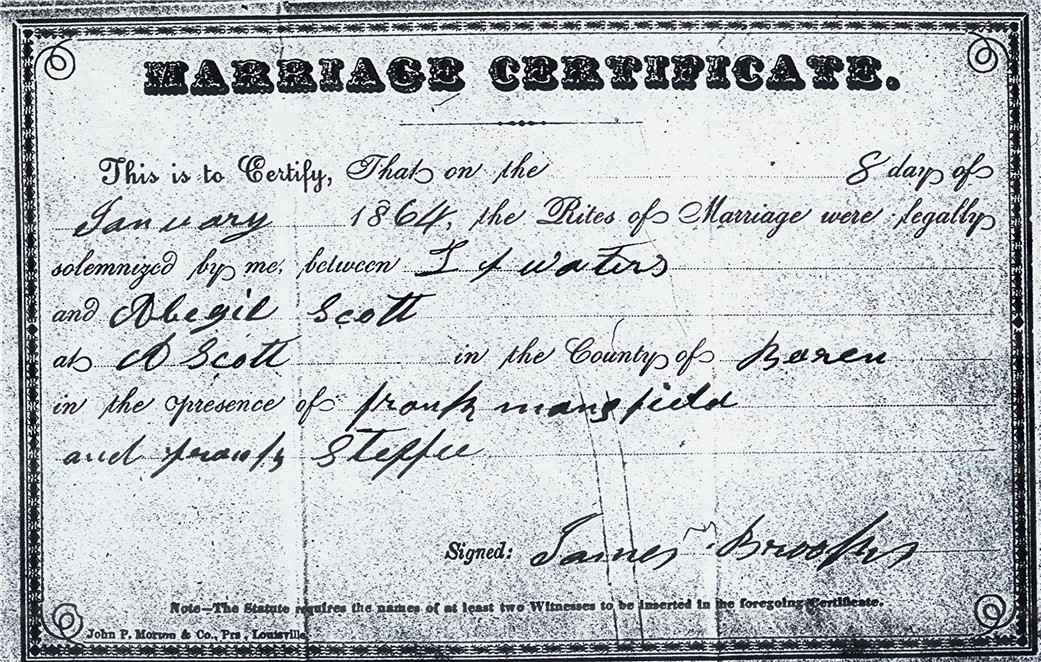 MARRIAGE CERTIFICATE.
This is to Certify, That on the 8 day of
January 1864, the Rites of Marriage were legally
solemnized by me, between waters
and Abegil Scott
at A Scott in the County of Baren
in the presence of frank mansfield
and frank Steffee
Signed: James Brooks
Note—The Statute requires the names of at least two Witnesses to be inserted in the foregoing Certificate.
John P. Morton & Co., Prs, Louisville.